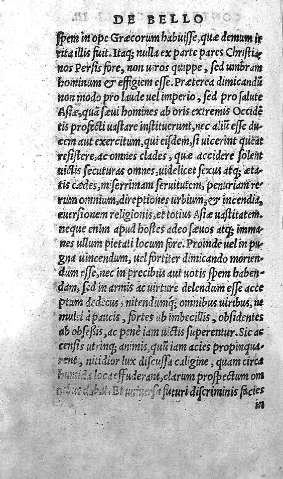 DE BELLO
spem in ope Græcorum habuisse, quæ demum ir
rita illis fuit. Itaq; nulla ex parte pares Christia
nos Persis fore, non uiros quippe, sed umbram
hominum & effigiem esse. Præterea dimicandū
non modo pro laude uel imperio, sed pro salute
Asiæ, quā sæui homines ab oris extremis Occidē
tis profecti uastare instituerunt, nec aliū esse du
cem aut exercitum, qui eisdem, si uicerint queat
resistere, ac omnes clades, quæ accidere solent
uictis secuturas omnes, uidelicet sexus atq; æta
tis cædes, miserrimam seruitutem, penuriam re
rum omnium, direptiones urbium, & incendia,
euersionem religionis, et totius Asiæ uastitatem.
neque enim apud hostes adeo sæuos atq; imma
nes ullum pietati locum fore. Proinde uel in pu
gna uincendum, uel fortiter dimicando morien
dum esse, nec in precibus aut uotis spem haben
dam, sed in armis ac uirtute delendum esse acce
ptum dedecus: nitendumq; omnibus uiribus, ne
multi à paucis, fortes ab imbecillis, obsidentes
ab obsessis, ac penè iam uictis superentur. Sic ac
censis utrinq; animis, quū iam acies propinqua
rent, nitidior lux discussa caligine, quam circa
humida loca effuderant, clarum prospectum om
Et uniuersa futuri discriminis facies
in